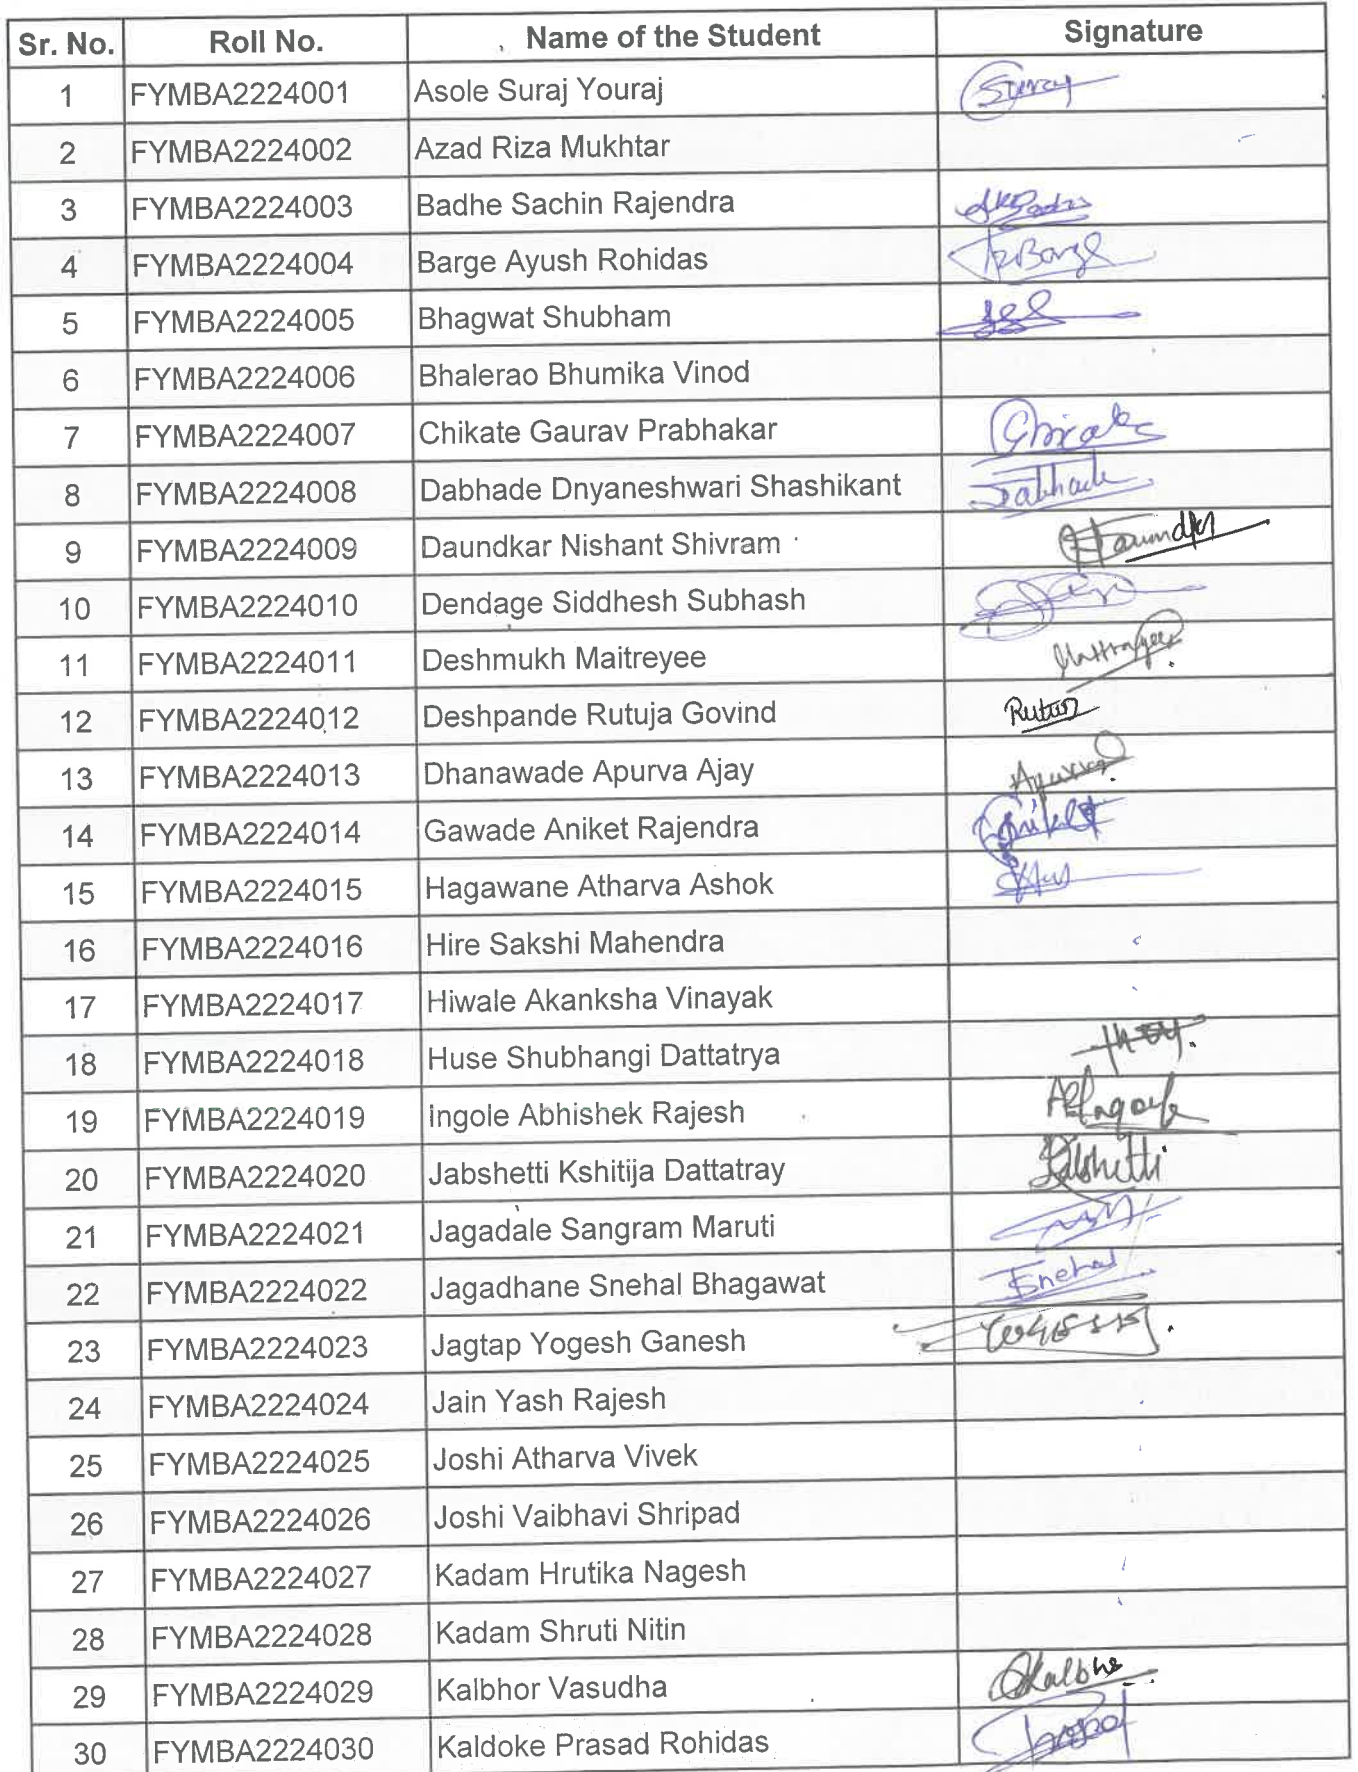 Sr. No. Roll No. Name of the Student Signature
1 FYMBA2224001 Asole Suraj Youraj Suraj
2 FYMBA2224002 Azad Riza Mukhtar
3 FYMBA2224003 Badhe Sachin Rajendra
4 FYMBA2224004 Barge Ayush Rohidas
5 FYMBA2224005 Bhagwat Shubham
6 FYMBA2224006 Bhalerao Bhumika Vinod
7 FYMBA2224007 Chikate Gaurav Prabhakar
8 FYMBA2224008 Dabhade Dnyaneshwari Shashikant Dabhade
9 FYMBA2224009 Daundkar Nishant Shivram
10 FYMBA2224010 Dendage Siddhesh Subhash
11 FYMBA2224011 Deshmukh Maitreyee
12 FYMBA2224012 Deshpande Rutuja Govind
13 FYMBA2224013 Dhanawade Apurva Ajay Apurva
14 FYMBA2224014 Gawade Aniket Rajendra Aniket
15 FYMBA2224015 Hagawane Atharva Ashok
16 FYMBA2224016 Hire Sakshi Mahendra
17 FYMBA2224017 Hiwale Akanksha Vinayak
18 FYMBA2224018 Huse Shubhangi Dattatrya
19 FYMBA2224019 Ingole Abhishek Rajesh
20 FYMBA2224020 Jabshetti Kshitija Dattatray Jabshetti
21 FYMBA2224021 Jagadale Sangram Maruti
22 FYMBA2224022 Jagadhane Snehal Bhagawat Snehal
23 FYMBA2224023 Jagtap Yogesh Ganesh
24 FYMBA2224024 Jain Yash Rajesh
25 FYMBA2224025 Joshi Atharva Vivek
26 FYMBA2224026 Joshi Vaibhavi Shripad
27 FYMBA2224027 Kadam Hrutika Nagesh
28 FYMBA2224028 Kadam Shruti Nitin
29 FYMBA2224029 Kalbhor Vasudha
30 FYMBA2224030 Kaldoke Prasad Rohidas